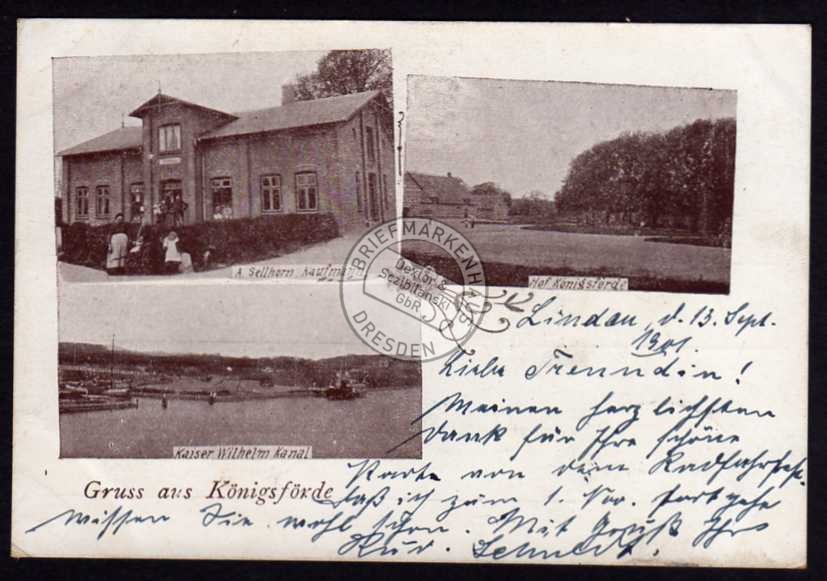 A. Sellhorn, Kaufmann
Hof Königsförde
Kaiser Wilhelm Kanal
Gruss aus Königsförde
BRIEFMARKENHAUS
Dektor &
Sczibilanski
GbR
DRESDEN
Lindau, d. 13. Sept.
1901.
Liebe Freundin!
Meinen herzlichsten
Dank für Ihre schöne
Karte von dem Radfahrfest.
Daß ich zum 1. Nov. fortgehe
wissen Sie wohl schon. Mit Gruß Ihr
Rud. Schmidt.